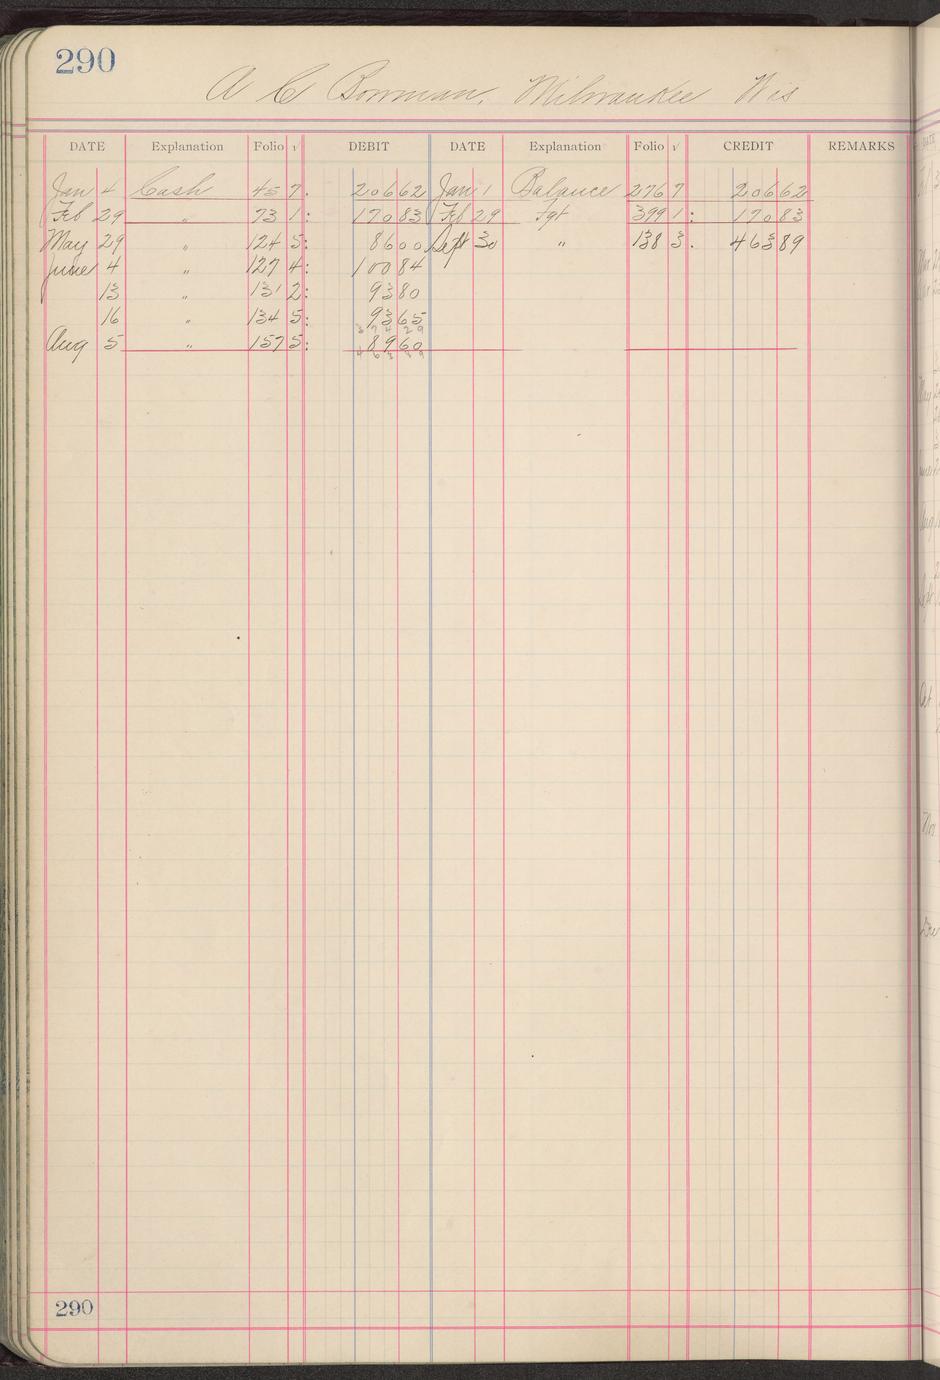 290
A C Bowman, Milwaukee Wis
DATE Explanation Folio √ DEBIT DATE Explanation Folio √ CREDIT REMARKS
Jan 4 Cash 45 7. 206 62 Jan 1 Balance 276 7 206 62
Feb 29 " 73 1: 170 83 Feb 29 Fgt 399 1: 170 83
May 29 " 124 5: 86 00 Sept 30 " 138 3. 463 89
June 4 " 127 4: 100 84
13 " 131 2: 93 80
16 " 134 5: 93 65
374 29
Aug 5 " 157 5: 89 60
463 89
290